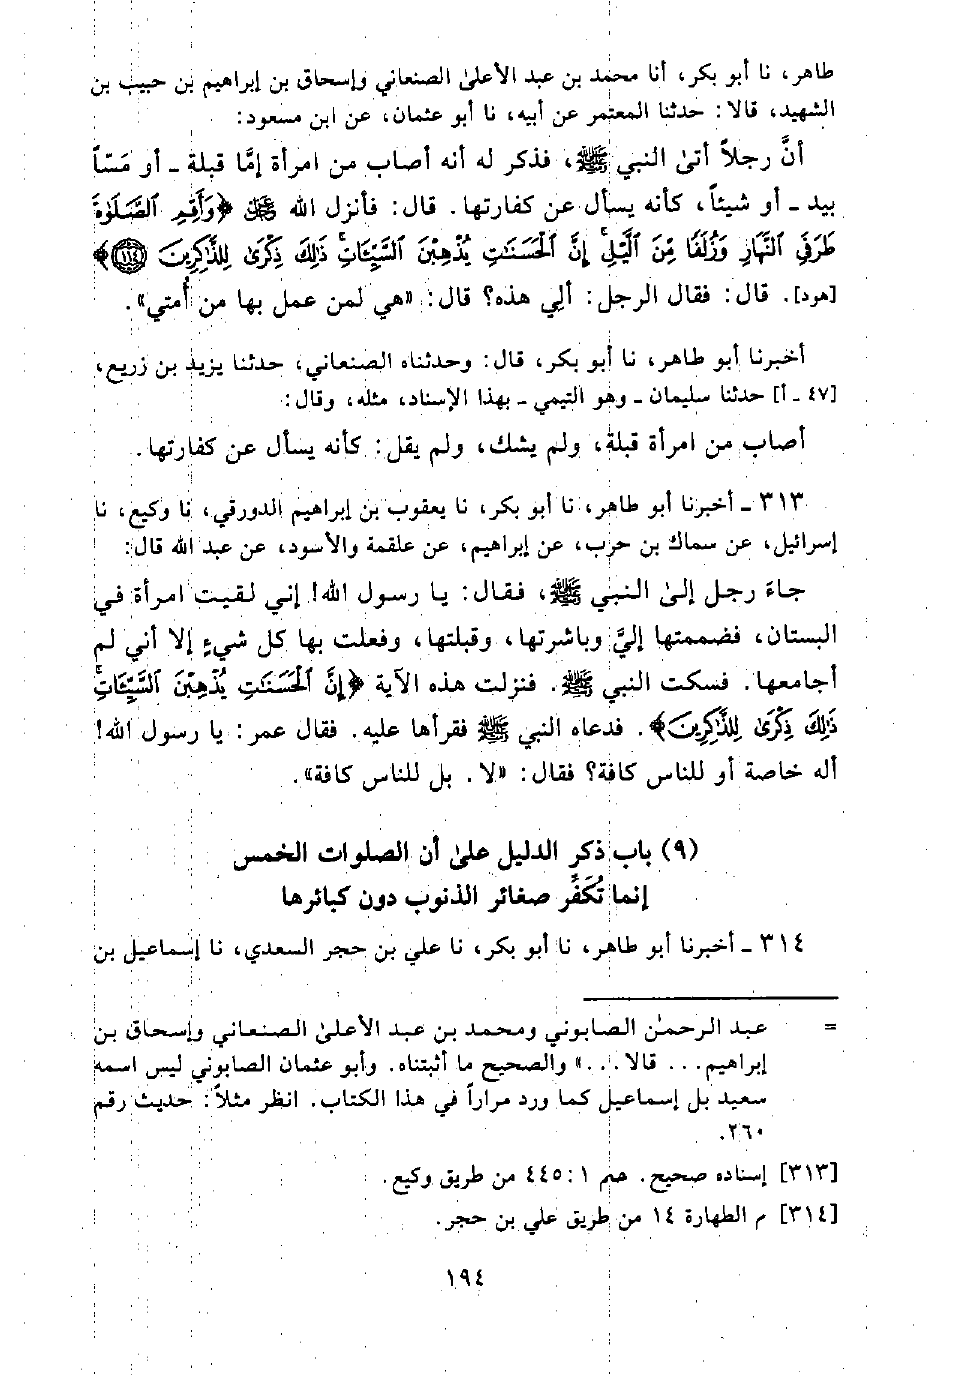 طاهر، نا أبو بكر، أنا محمد بن عبد الأعلىٰ الصنعاني وإسحاق بن إبراهيم بن حبيب بن
الشهيد، قالا: حدثنا المعتمر عن أبيه، نا أبو عثمان، عن ابن مسعود:
أنَّ رجلاً أتىٰ النبي ﷺ، فذكر له أنه أصاب من امرأة إمَّا قبلة ـ أو مَسّاً
بيد ـ أو شيئاً، كأنه يسأل عن كفارتها. قال: فأنزل الله ﷻ ﴿وَأَقِمِ ٱلصَّلَوٰةَ
طَرَفَىِ ٱلنَّهَارِ وَزُلَفًا مِّنَ ٱلَّيْلِ ۚ إِنَّ ٱلْحَسَنَٰتِ يُذْهِبْنَ ٱلسَّيِّـَٔاتِ ۚ ذَٰلِكَ ذِكْرَىٰ لِلذَّٰكِرِينَ ١١٤﴾
[هود]. قال: فقال الرجل: ألِي هذه؟ قال: «هي لمن عمل بها من أُمتي».
أخبرنا أبو طاهر، نا أبو بكر، قال: وحدثناه الصنعاني، حدثنا يزيد بن زريع،
[٤٧ ـ أ] حدثنا سليمان ـ وهو التيمي ـ بهذا الإسناد، مثله، وقال:
أصاب من امرأة قبلة، ولم يشك، ولم يقل: كأنه يسأل عن كفارتها.
٣١٣ ـ أخبرنا أبو طاهر، نا أبو بكر، نا يعقوب بن إبراهيم الدورقي، نا وكيع، نا
إسرائيل، عن سماك بن حرب، عن إبراهيم، عن علقمة والأسود، عن عبد الله قال:
جاءَ رجل إلىٰ النبي ﷺ، فقال: يا رسول الله! إني لقيت امرأة في
البستان، فضممتها إليَّ وباشرتها، وقبلتها، وفعلت بها كل شيءٍ إلا أني لم
أجامعها. فسكت النبي ﷺ. فنزلت هذه الآية ﴿إِنَّ ٱلْحَسَنَٰتِ يُذْهِبْنَ ٱلسَّيِّـَٔاتِ ۚ
ذَٰلِكَ ذِكْرَىٰ لِلذَّٰكِرِينَ﴾. فدعاه النبي ﷺ فقرأها عليه. فقال عمر: يا رسول الله!
أله خاصة أو للناس كافة؟ فقال: «لا. بل للناس كافة».
(٩) باب ذكر الدليل علىٰ أن الصلوات الخمس
إنما تُكَفِّر صغائر الذنوب دون كبائرها
٣١٤ ـ أخبرنا أبو طاهر، نا أبو بكر، نا علي بن حجر السعدي، نا إسماعيل بن
= عبد الرحمٰن الصابوني ومحمد بن عبد الأعلىٰ الصنعاني وإسحاق بن
إبراهيم... قالا...» والصحيح ما أثبتناه. وأبو عثمان الصابوني ليس اسمه
سعيد بل إسماعيل كما ورد مراراً في هذا الكتاب. انظر مثلاً: حديث رقم
٢٦٠.
[٣١٣] إسناده صحيح. حم ١: ٤٤٥ من طريق وكيع.
[٣١٤] م الطهارة ١٤ من طريق علي بن حجر.
١٩٤